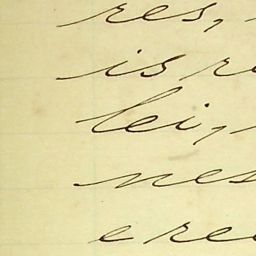 res,
is r
lei,
nes
e ree